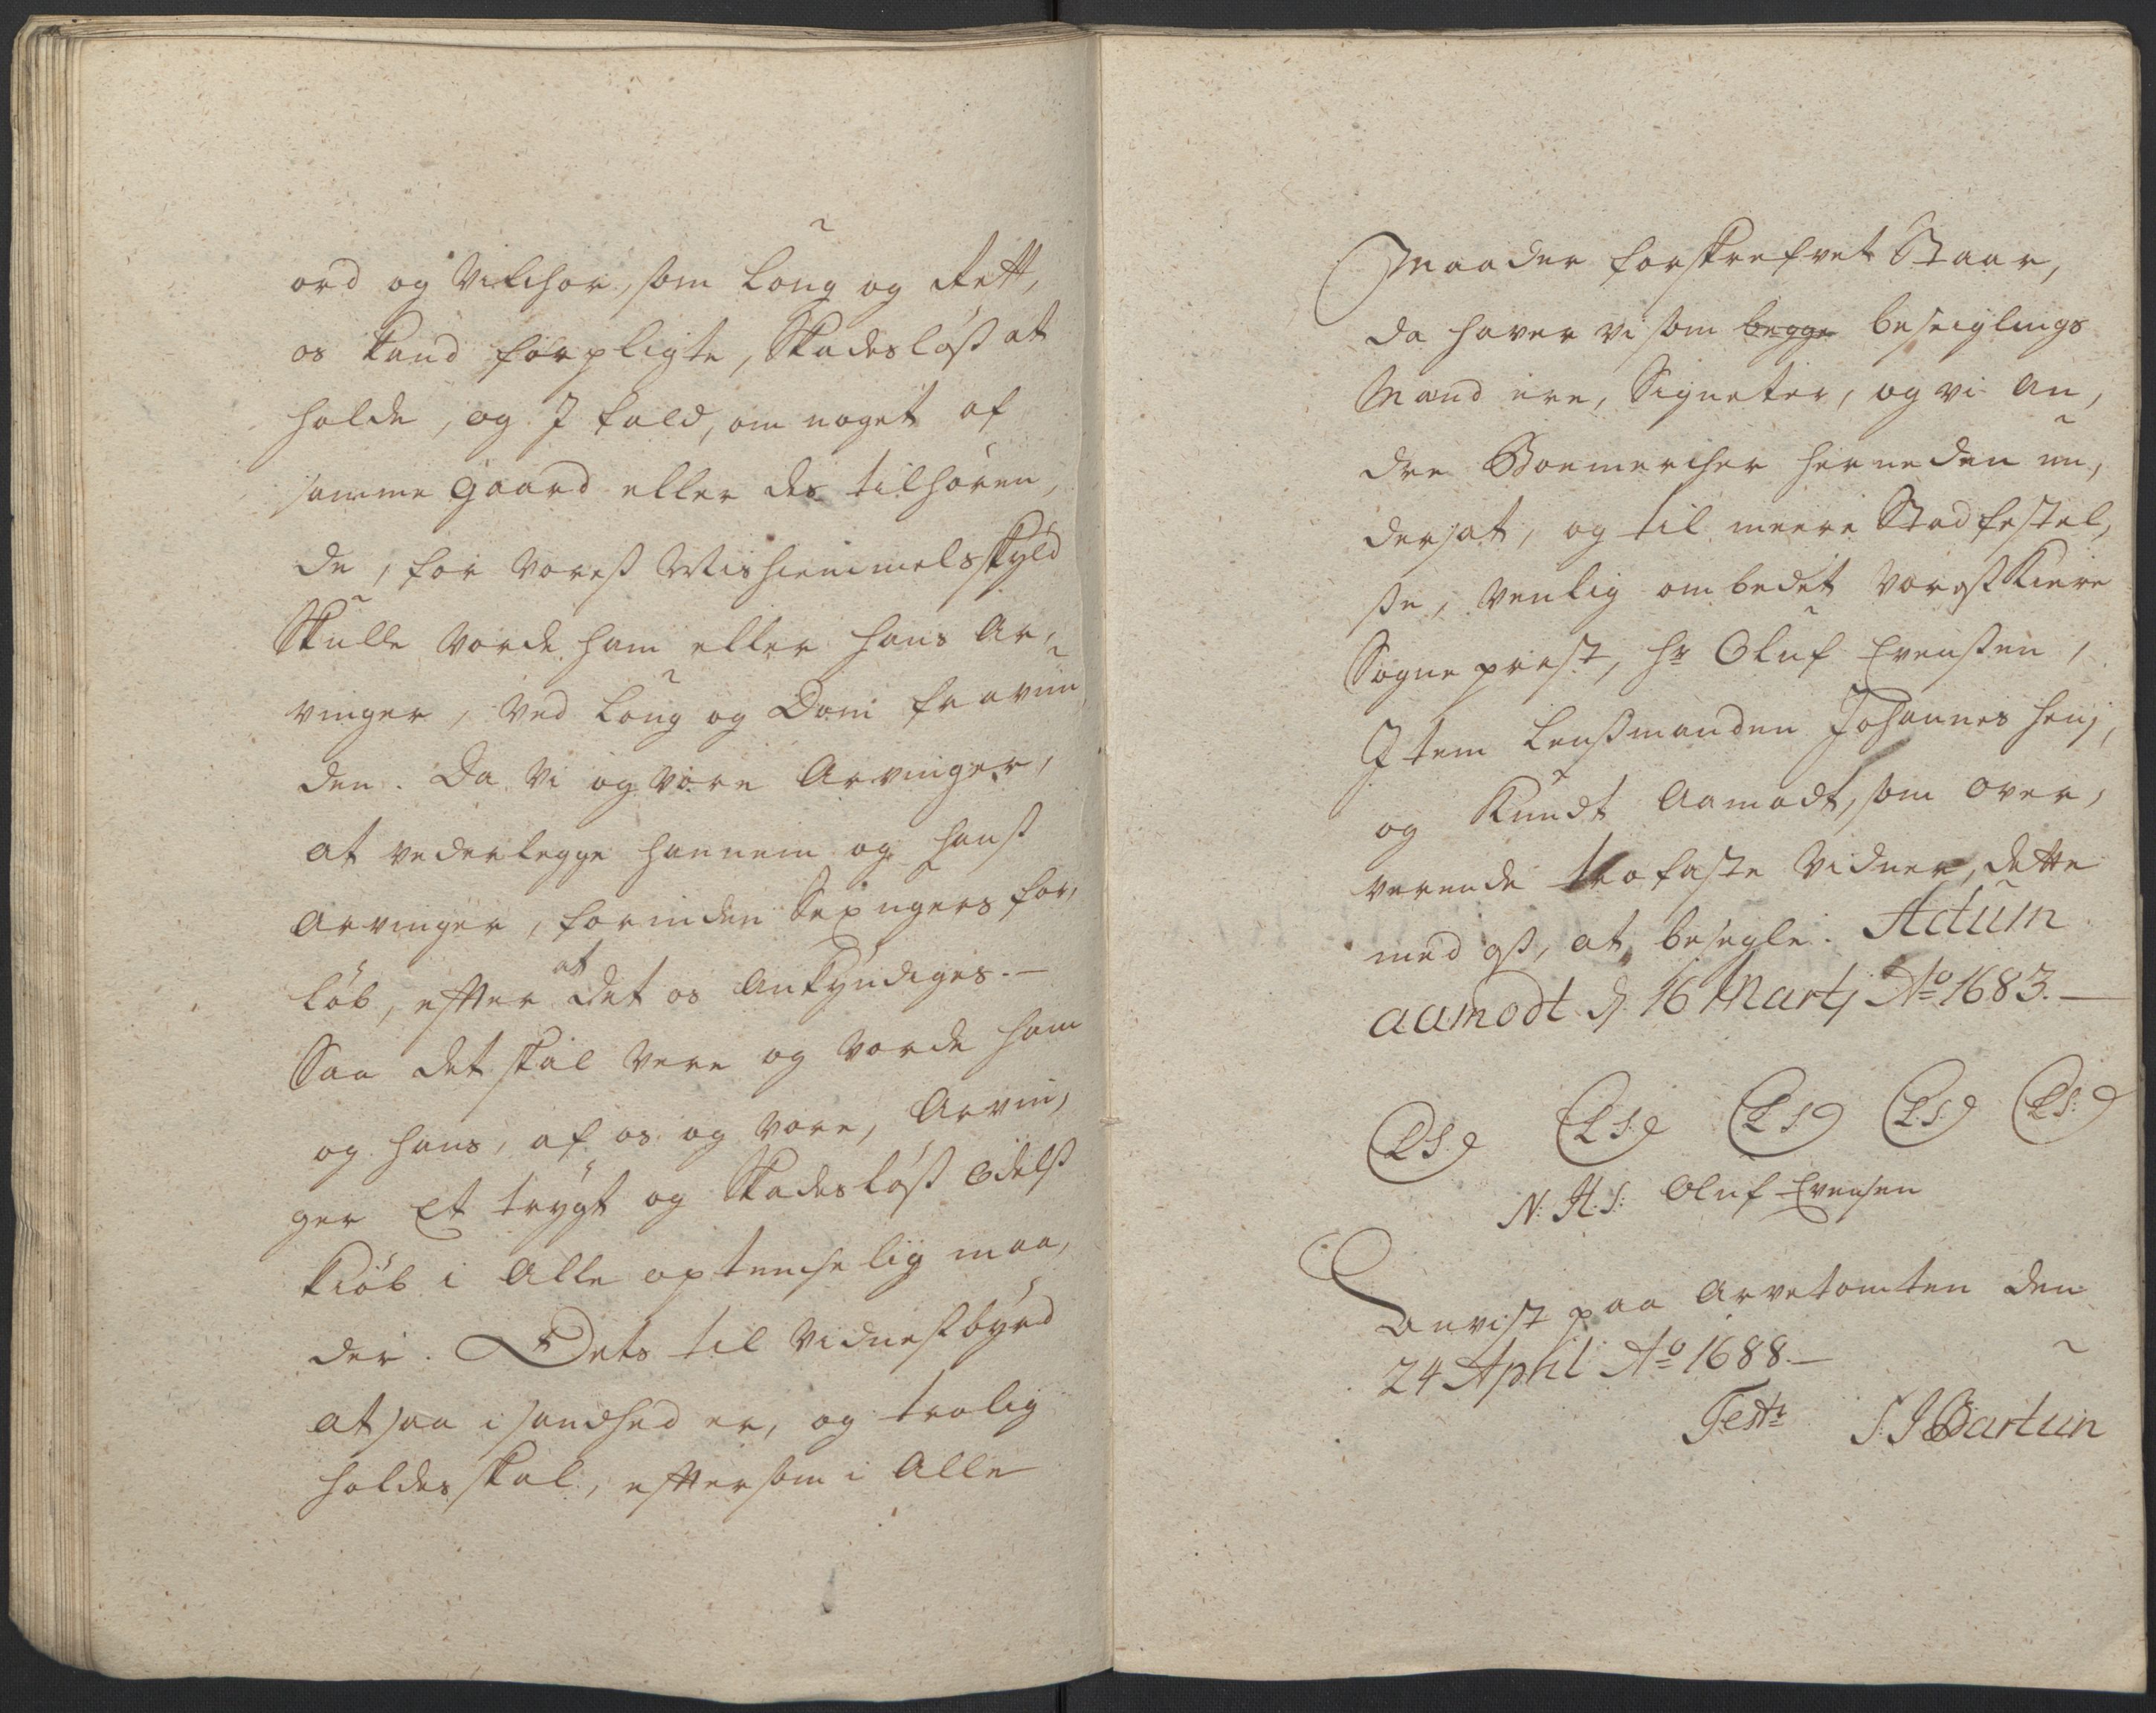 ord og Vilchor, som Loug og Rett,
os kand forpligte, Skadesløß at
holde, og I fald, om noget af
samme gaard eller des tilhøren,
de, for voreß Mishiemmels skyld
Skulle vorde ham eller hans Ar,
vinger, ved Loug og Dom fravun
den. Da vi og vore Arvinger,
at vederlegge hannem og hanß
Arvinger, forinden Sex ugers for,
løb, efter at det os Ankyndiges.—
Saa det skal vere og vorde ham
og hans, af os og vore, Arvin,
ger Et trygt og Skadesløß Odelß
kiøb i Alle optenchelig maa,
der. Dets til Vidneßbyrd
at saa i sandhed er, og trolig
holdes skal, eftersom i Alle
Maader forskrefvet Staar,
da haver vi som begge beseiglings
Mænd ere, Signeter, og vi An,
dre Boemercher herneden un,
dersat, og til meere Stadfestel,
ße, venlig ombedet voreß Kiere
Sogneprest, Hr Oluf Evenßen,
Item Lenßmanden Johannes Henj,
og Knudt Aamodt, som over,
verende trofaste Vidner, dette
med oß, at besegle. Actum
aamodt d. 16 Martj Ao 1683.—
L.S. L.S. L.S. L.S. L.S.
N: A: S: Oluf Evensen
Anvist paa Arvetomten den
24 April Ao 1688.—
Test: S: J Bartun